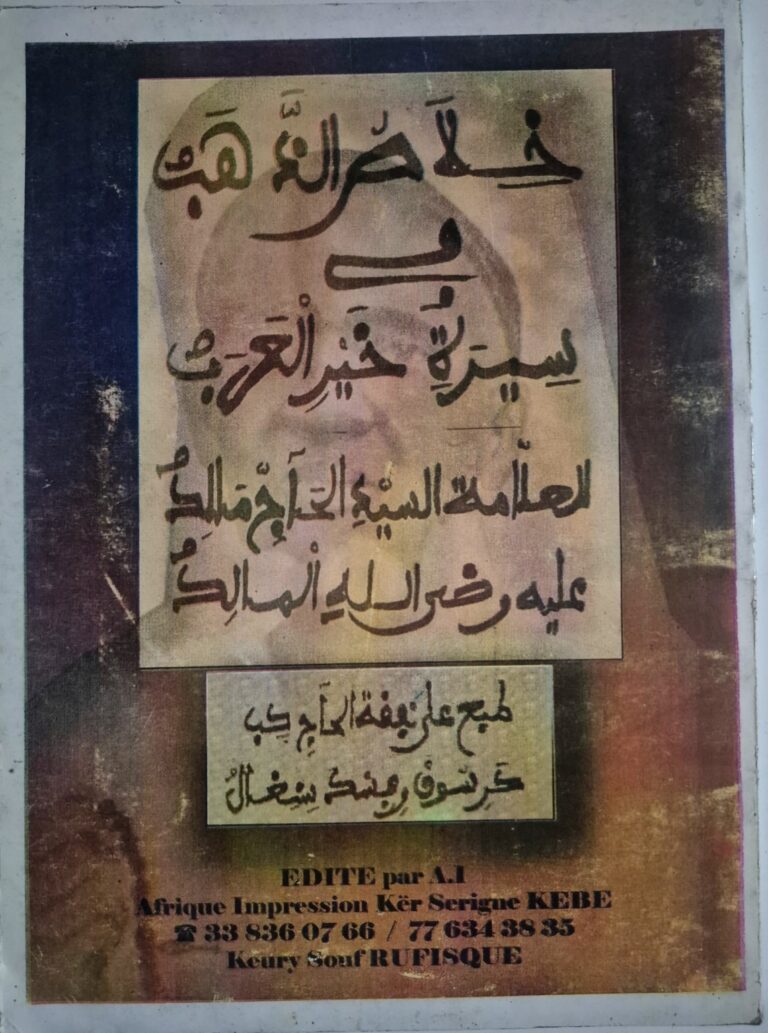 خِلَاصُ الذَّهَبْ
في
سِيرَةِ خَيْرِ الْعَرَبْ
للعلّامة السيّدِ الحَاجِّ مَالِكْ
عليه رضى اللهِ الْمالِكْ
طبع على نفقة الحَاجِ كِبِ
كَرِسُوفْ رفسك سِنِغَالْ
EDITE par A.I
Afrique Impression Kër Serigne KEBE
☎ 33 836 07 66 / 77 634 38 35
Keury Souf RUFISQUE